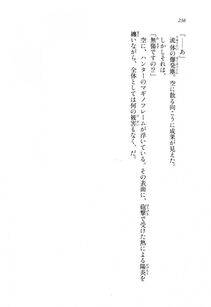 236
「――あ」
流体の爆発塵。空に散る向こうに成果が見えた。
しかしそれは、
「無傷ですの!?」
空に、ハンターのマギノフレームが浮いている。その表面に、砲撃で受けた熱による陽炎を
纏いながら、全体としては何の被害もなく、だ。